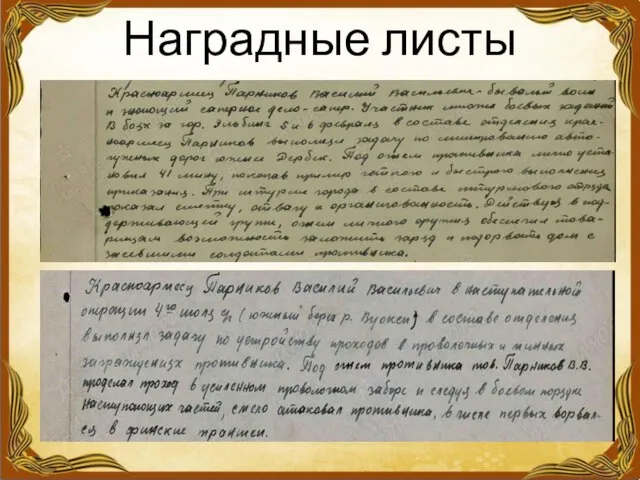 Наградные листы
Красноармеец Парников Василий Васильевич - бывалый воин
и знающий саперное дело - сапер. Участник многих боевых заданий
В боях за гор. Эльбинг 5 и 6 февраля в составе отделения крас-
ноармеец Парников выполнял задачу по минированию авто-
гужевых дорог южнее Дербек. Под огнем противника лично уста-
новил 41 мину, показав пример четкого и быстрого выполнения
приказания. При штурме города в составе штурмового отряда
показал смелку, отвагу и организованность. Действуя в под-
держивающей группе, огнем личного оружия обеспечил това-
рищам возможность заложить заряд и подорвать дом с
засевшими солдатами противника.
Красноармеец Парников Василий Васильевич в наступательной
операции 4го июля (южный берег р. Вуокси) в составе отделения
выполнял задачу по устройству проходов в проволочных и минных
заграждениях противника. Под огнем противника тов. Парников В.В.
проделал проход в усиленном проволочном заборе и следуя в боевом порядке
наступающих частей, смело атаковал противника, в числе первых ворвал-
ся в финские траншеи.